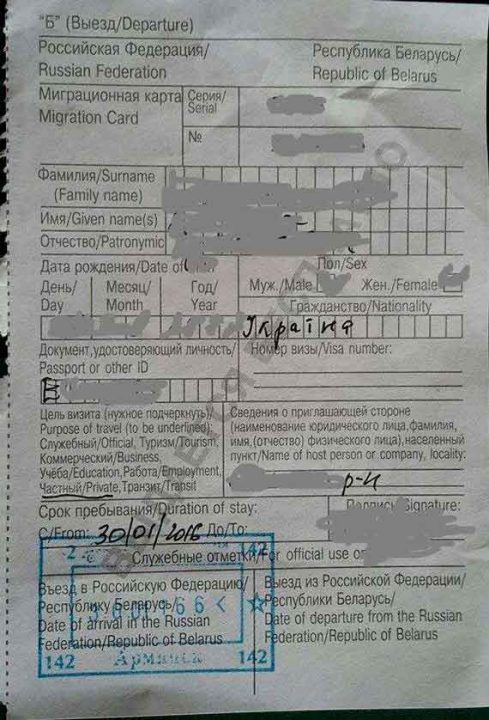 "Б" (Выезд/Departure)
Российская Федерация/ Республика Беларусь/
Russian Federation Republic of Belarus
Миграционная карта Серия/
Migration Card Serial
№
Фамилия/Surname
(Family name)
Имя/Given name(s)
Отчество/Patronymic
Дата рождения/Date of Пол/Sex
День/ Месяц/ Год/ Муж./Male Жен./Female
Day Month Year Гражданство/Nationality
Україна
Документ,удостоверяющий личность/ Номер визы/Visa number:
Passport or other ID
Цель визита (нужное подчеркнуть)/ Сведения о приглашающей стороне
Purpose of travel (to be underlined): (наименование юридического лица,фамилия,
Служебный/Official, Туризм/Tourism, имя,(отчество) физического лица),населенный
Коммерческий/Business, пункт/Name of host person or company, locality:
Учёба/Education,Работа/Employment,
Частный/Private,Транзит/Transit р-н
Срок пребывания/Duration of stay: Подпись/Signature:
С/From: 30/01/2016 До/To:
Служебные отметки/For official use only
Въезд в Российскую Федерацию/ Выезд из Российской Федерации/
Республику Беларусь/ Республики Беларусь/
Date of arrival in the Russian Date of departure from the Russian
Federation/Republic of Belarus Federation/Republic of Belarus
142 Армянск 142